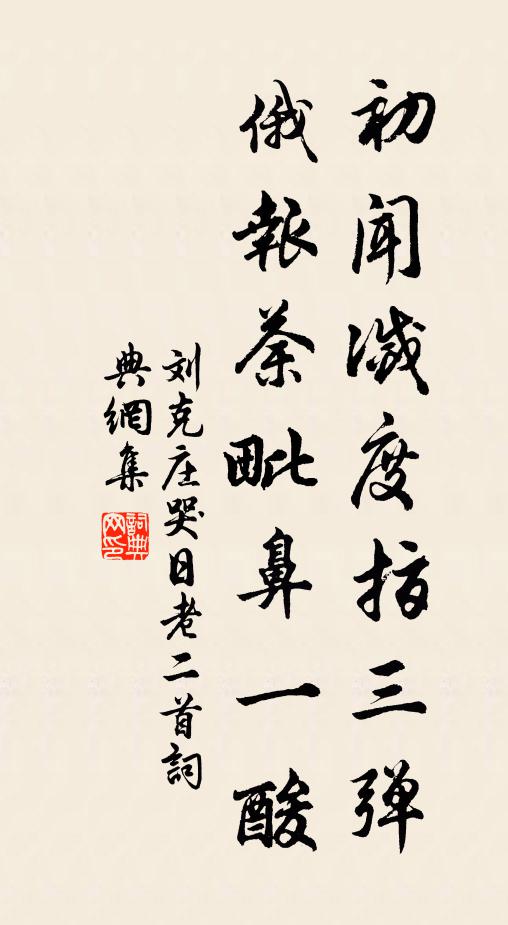 初聞滅度指三弹
俄報茶毗鼻一酸
刘克庄哭日老二首詞
典網集
詞典网印